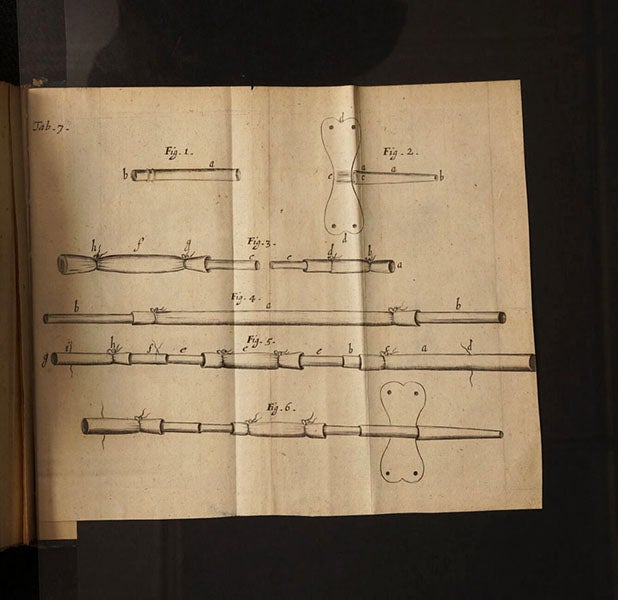 Tab. 7.
Fig. 1.
a
b
Fig. 2.
d
a
a
e
c
b
d
Fig. 3
h
f
g
c
c
d
b
a
Fig. 4.
b
a
b
Fig. 5.
g
h
f
e
c
e
b
c
a
d
Fig. 6.